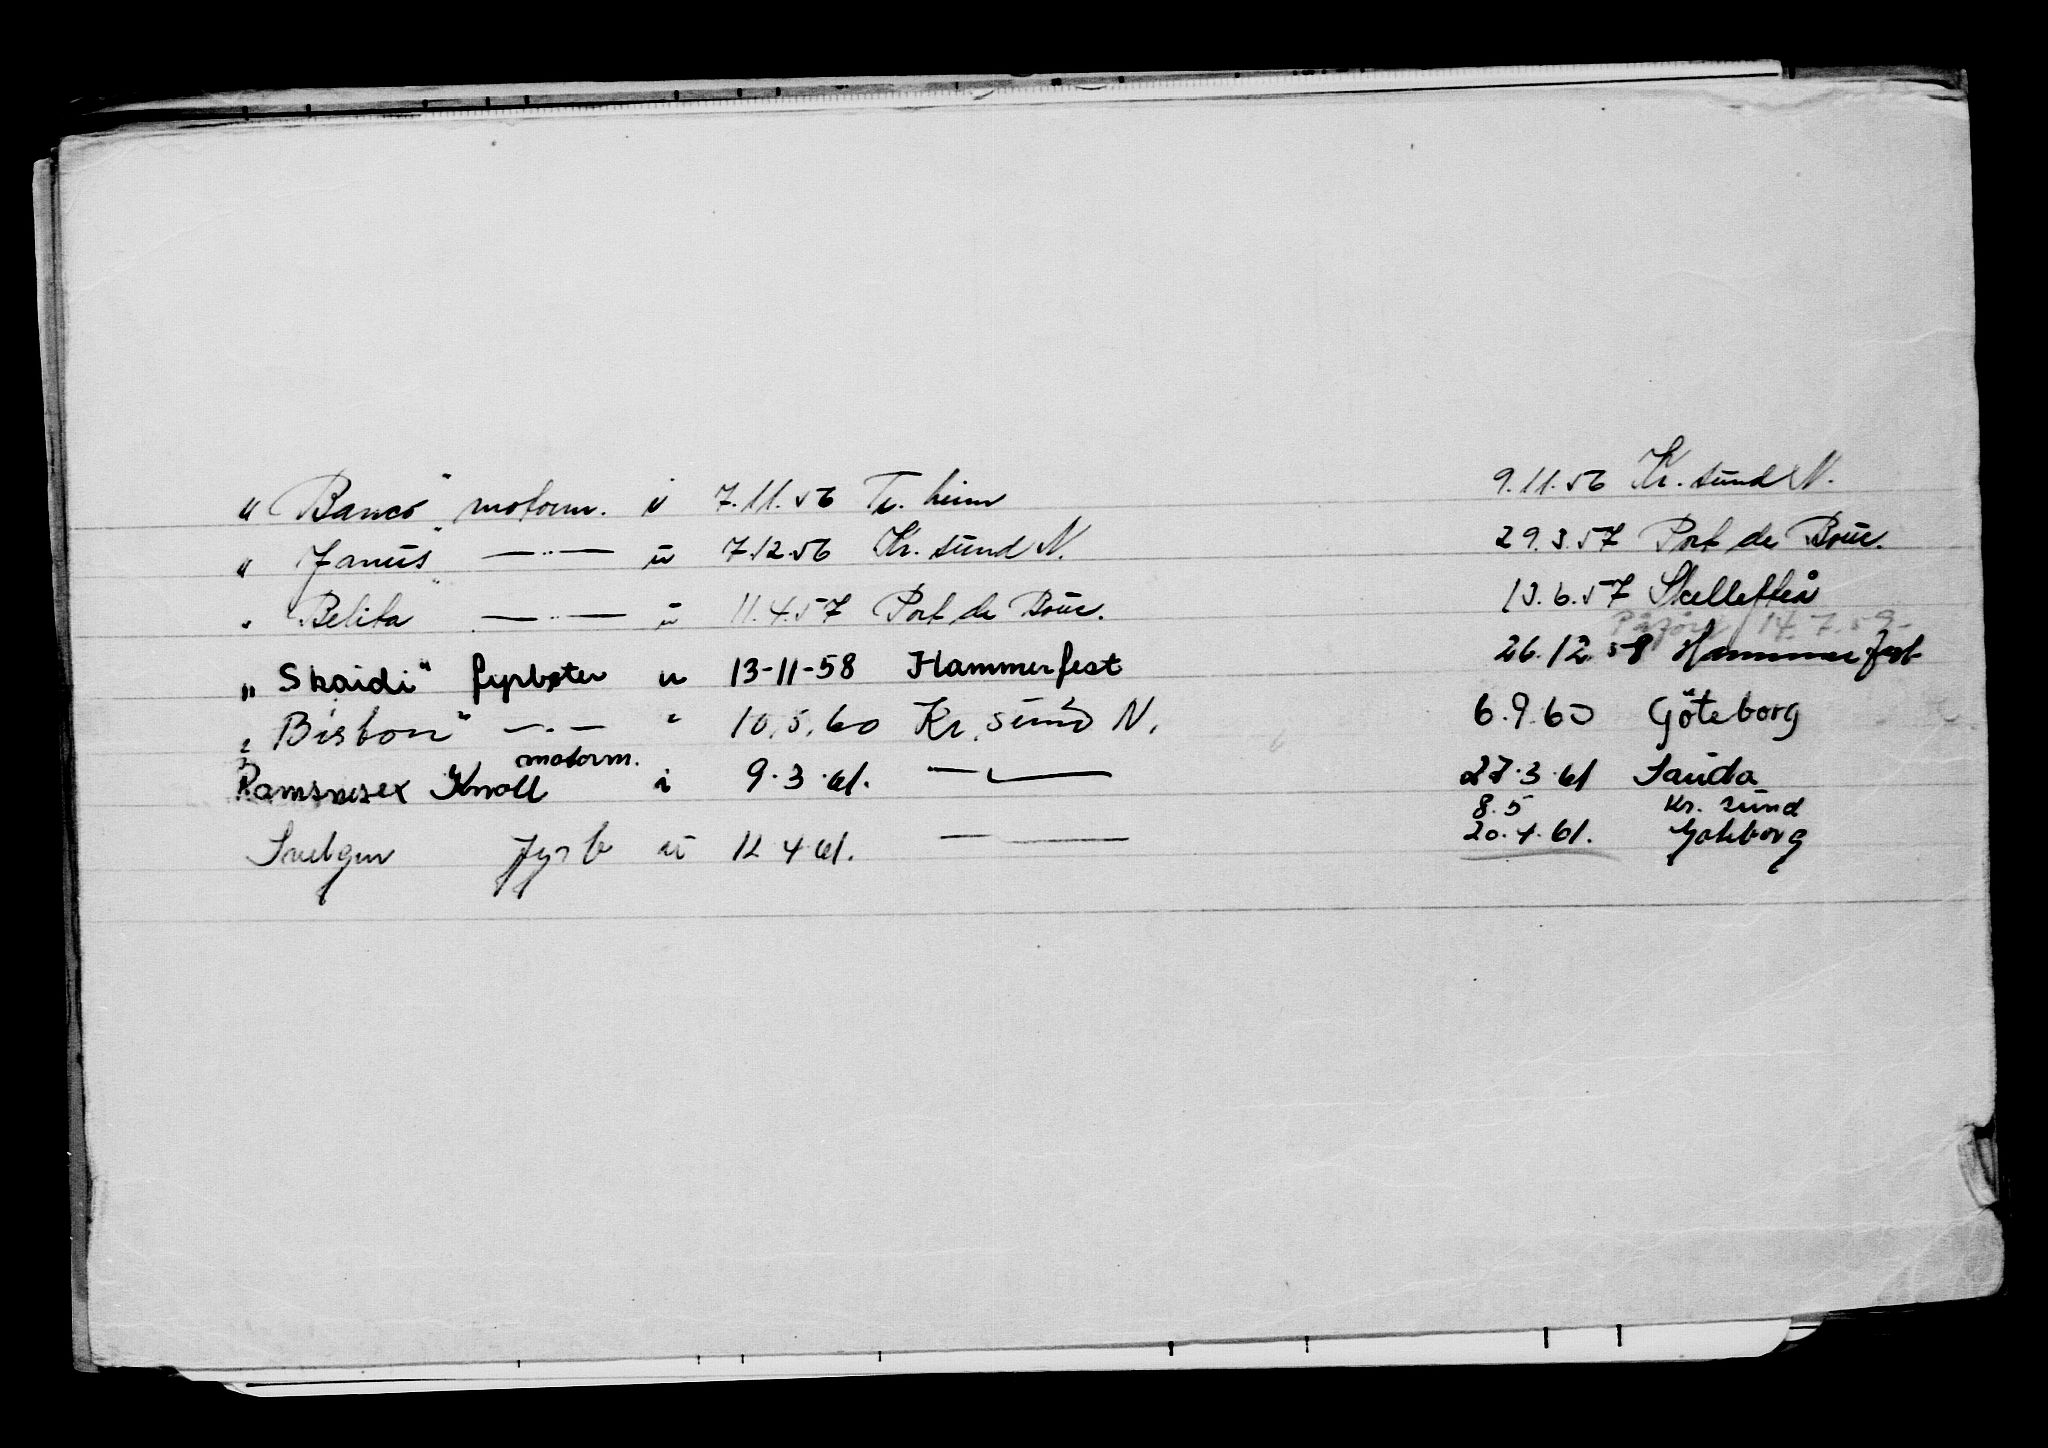 "Banco" motorm. i 7.11.56 Tr. heim 9.11.56 Kr. sund N.
"Janus" —..— u 7.12.56 Kr. sund N. 29.3.57 Port de Bouc.
"Belita" —..— u 11.4.57 Port de Bouc. 13.6.57 Skellefteå
14.7.59-
"Skaidi" fyrbøter u 13-11-58 Hammerfest 26.12.58 Hammerfest
"Bisbon" —..— " 10.5.60 Kr. sund N. 6.9.60 Göteborg
motorm.
Knoll i 9.3.61. —"— 27.3.61 Sauda
8.5 Kr. sund
Svelgen fyrb u 12.4.61. —"— 20.4.61. Gøteborg